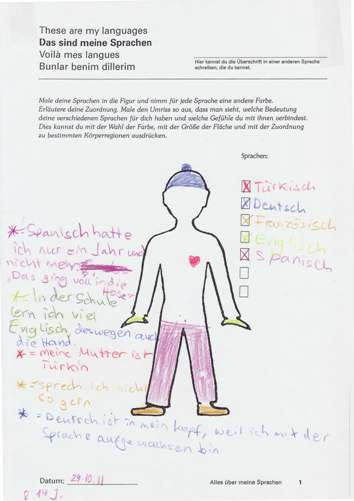 These are my languages
Das sind meine Sprachen
Voilà mes langues
Bunlar benim dillerim
Hier kannst du die Überschrift in einer anderen Sprache
schreiben, die du kannst.
Male deine Sprachen in die Figur und nimm für jede Sprache eine andere Farbe.
Erläutere deine Zuordnung. Male den Umriss so aus, dass man sieht, welche Bedeutung
deine verschiedenen Sprachen für dich haben und welche Gefühle du mit ihnen verbindest.
Dies kannst du mit der Wahl der Farbe, mit der Größe der Fläche und mit der Zuordnung
zu bestimmten Körperregionen ausdrücken.
Sprachen:
Türkisch
Deutsch
Französisch
Englisch
Spanisch
* = Spanisch hatte
ich nur ein Jahr und
nicht mehr.
"Das ging voll in die
Hose"
* = In der Schule
lern ich viel
Englisch, deswegen auch
die Hand.
* = meine Mutter ist
Türkin
* = sprech ich nicht
so gern
* = Deutsch ist in mein Kopf, weil ich mit der
Sprache aufgewachsen bin
Datum: 29.10.11
Alles über meine Sprachen 1
14 J.